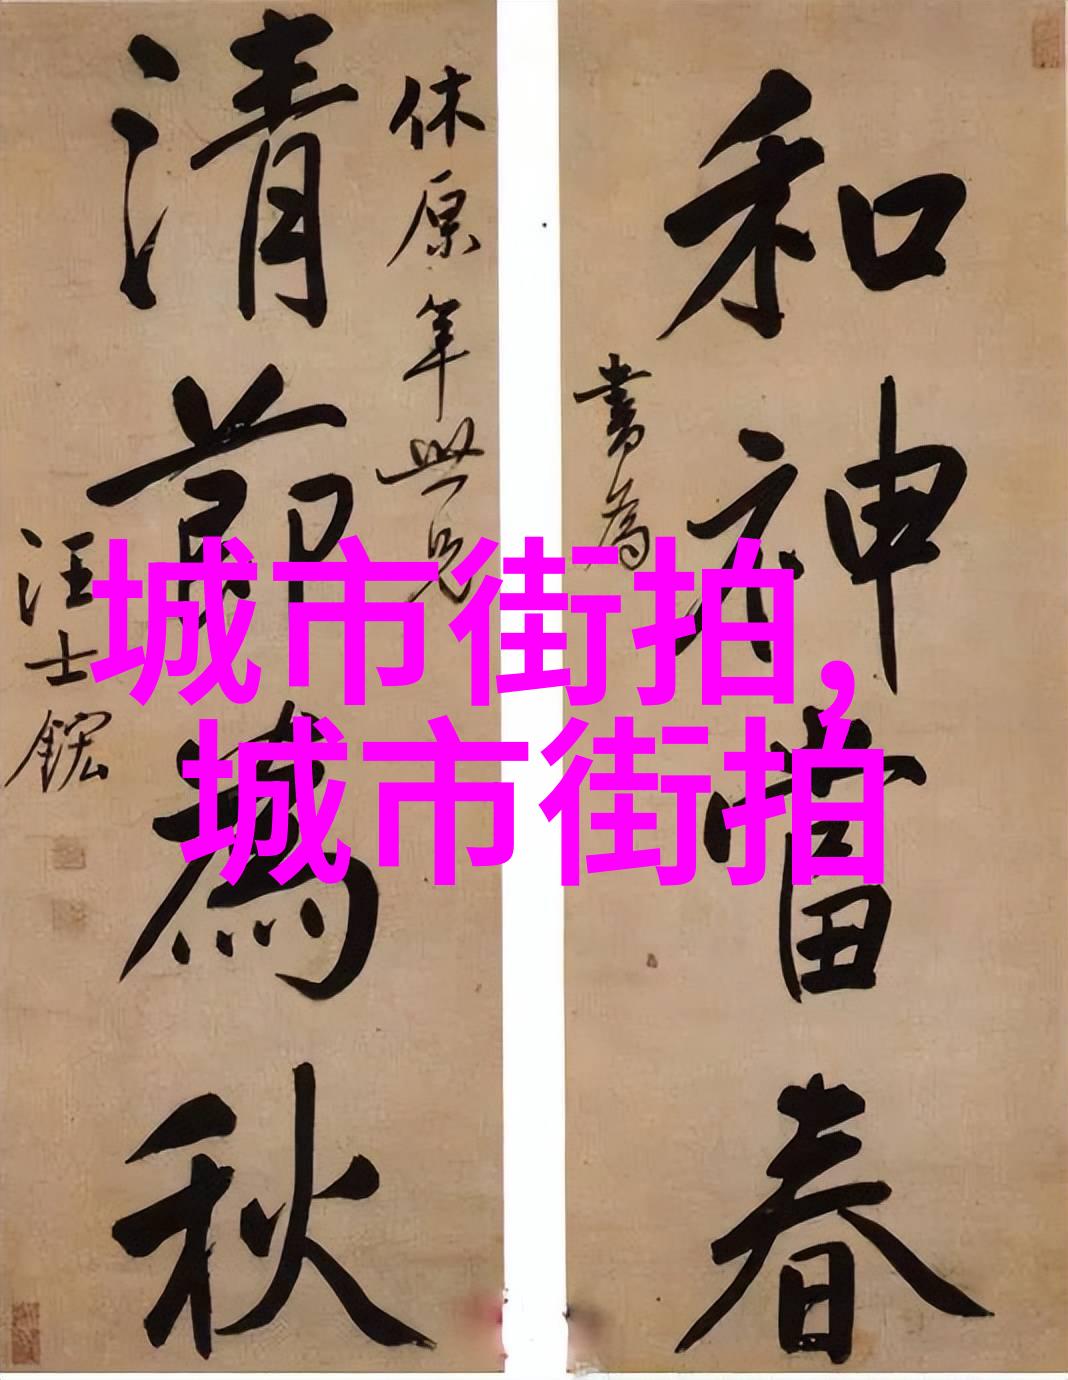 和神當春
書為
休原年世兄
清節為秋
汪士鋐
城市街拍,
城市街拍